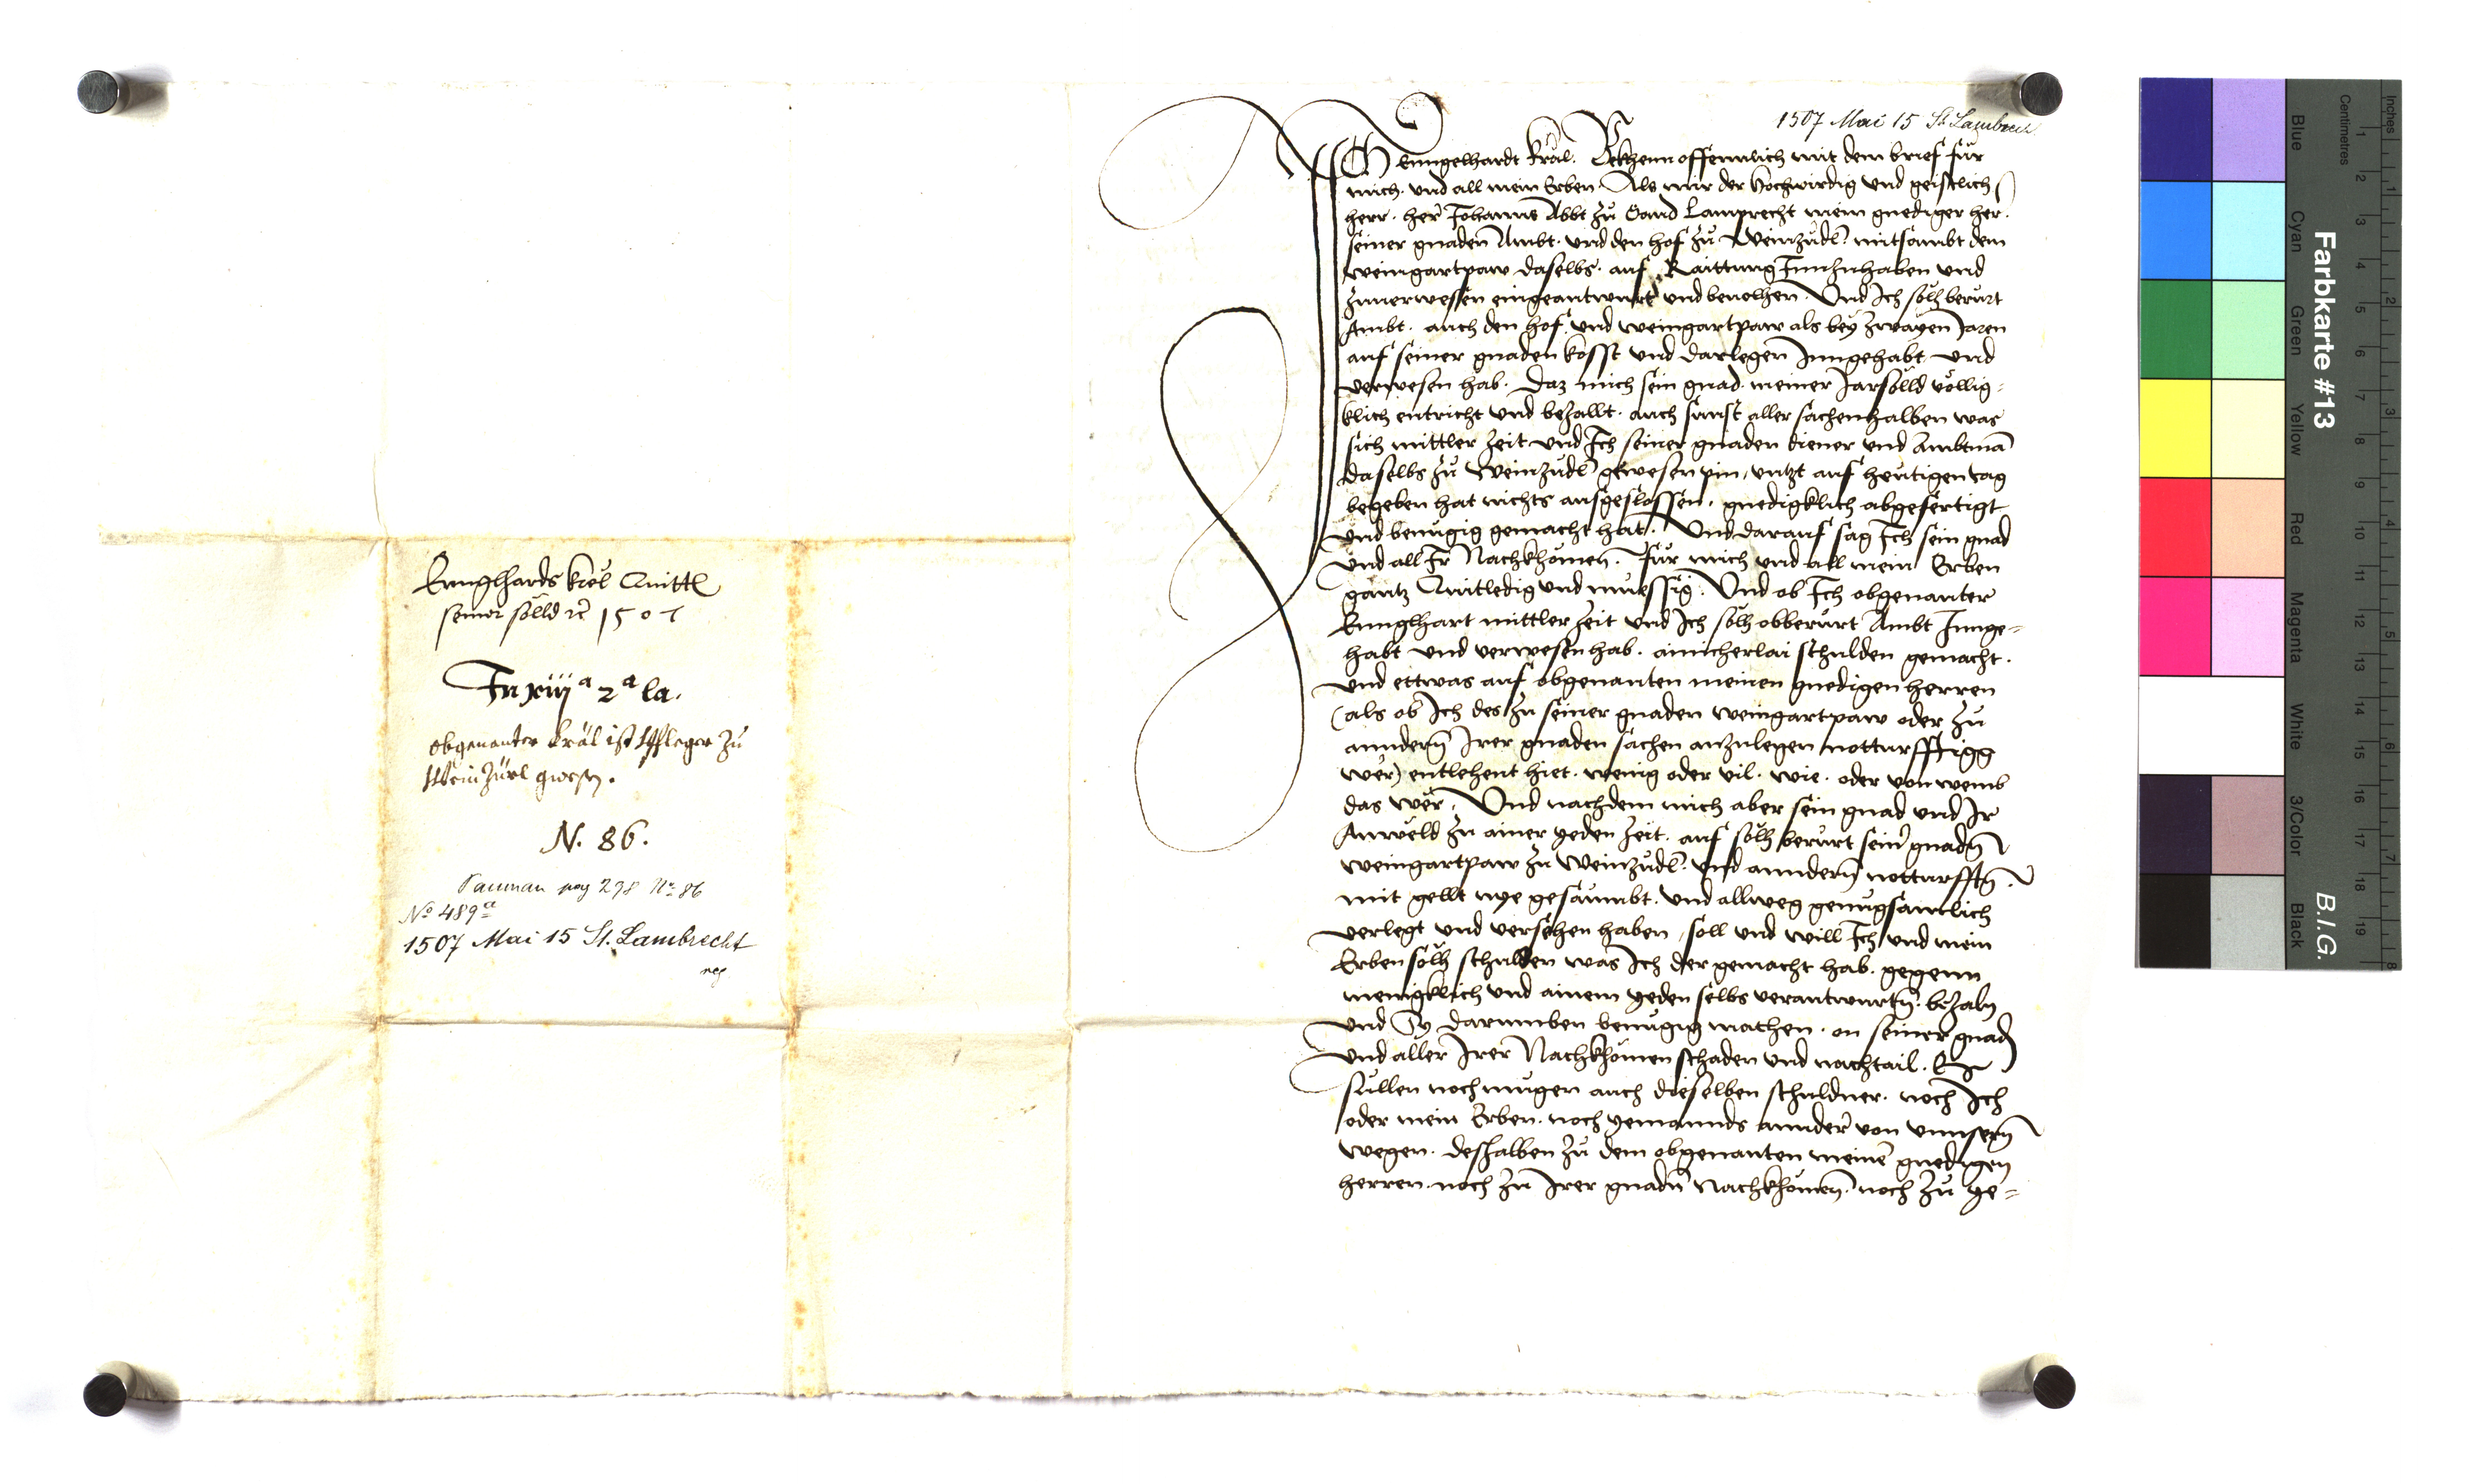 Ennglhards Kröl Quittl
seiner sölld rc 1507
In xiiij a 2 a la.
obgenanter Kräl ist Pfleger zu
Weinzürl gwesn.
N. 86.
pag 298 No 86
No 489a
1507 Mai 15 St. Lambrecht
1507 Mai 15 St. Lambrecht
Ich Enngelhardt Kräl. Bekhenn offennlich mit dem brief für
mich. vnd all mein Erben. Als mir der Hochwirdig vnd geistlich
herr. her Johanns Abbt zu Sand Lamprecht mein gnediger her.
seiner gnaden Ambt. vnd den hof zu Weinzüdl. mitsambt dem
weingartpaw daselbs. auf Raittung Innzuhaben vnd
zuuerwesen eingeantwurt vnd beuolhen. Vnd Ich solh berürt
Ambt. auch den hof. vnd weingartpaw als bey zwayen Jaren
auf seiner gnaden kosst vnd darlegen Inngehabt vnd
verwesen hab. Daz mich sein gnad. meiner Jarsölld völlig=
klich entricht vnd bezallt. auch sunst aller sachenhalben was
sich mittler zeit. vnd Ich seiner gnaden diener vnd Ambtman
daselbs zu Weinzüdl gewesen pin, vntzt auf heutigen tag
begeben hat nichts ausgeslossen. gnedigklich abgefertigt
vnd benügig gemacht hat. Vnd darauf sag Ich sein gnad
vnd all Ir Nachkhomen. für mich vnd all mein Erben
gantz Quitledig vnd müessig. Vnd ob Ich obgenanter
Ennglhart mittler zeit vnd Ich solh obberürt Ambt Innge=
habt vnd verwesen hab. ainicherlai schulden gemacht.
vnd ettwas auf obgenanten meinen gnedigen herren
(als ob Ich des zu seiner gnaden weingartpaw oder zu
anndern Irer gnaden sachen anzulegen notturfftigg
wer) entlehent hiet. wenig oder vil. wie. oder von wemb
das wer. Vnd nachdem mich aber sein gnad vnd Ir
Anwëld zu ainer yeden zeit. auf solh berürt seinr gnadn
weingartpaw zu Weinzüdl. vnd anndern notturfftn.
mit gellt nye gesaumbt. vnd allweg genugsamlich
verlegt vnd versehen haben, soll vnd will Ich vnd mein
Erben solh schulden was Ich der gemacht hab. gegenn
menigklich vnd ainem yeden selbs verantwurtn. bezaln
vnd Sy darumben benügig machen. on seiner gnad
vnd aller Irer Nachkhomen schaden vnd nachtail. Es
sullen noch mugen auch dieselben schuldner. noch Ich
oder mein Erben. noch yemannds annder von vnnsern
wegen. deshalben zu dem obgenanten meinem gnedigen
herren. noch zu Irer gnadn Nachkhomen. noch zu ye=
Farbkarte #13
B.I.G.
Inches
Centimetres
Blue
Cyan
Green
Yellow
Red
Magenta
White
3/Color
Black
1 2 3 4 5 6 7 8 9 10 11 12 13 14 15 16 17 18 19
1 2 3 4 5 6 7 8